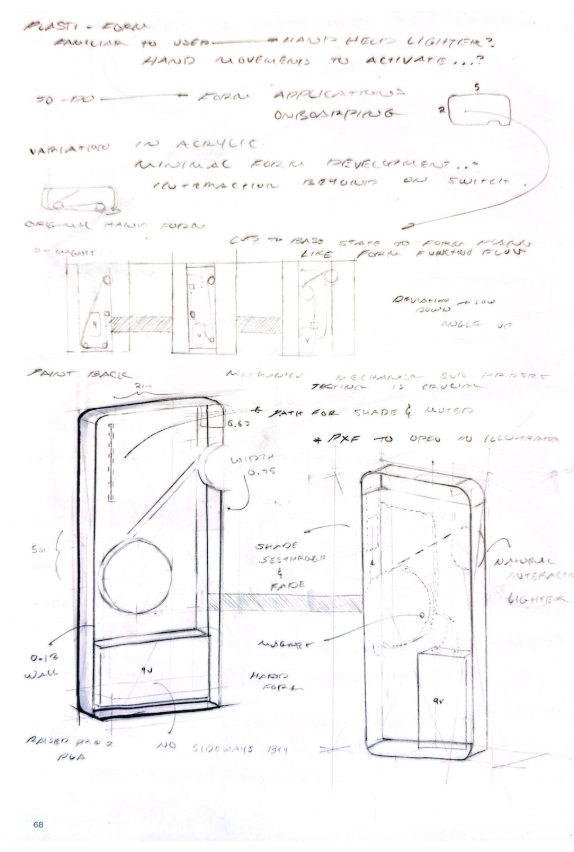 PLASTI-FORM
FAMILIAR TO USER HAND HELD LIGHTER?
HAND MOVEMENTS TO ACTIVATE...?
TO-DO FORM APPLICATIONS
ONBOARDING
5
2
VARIATION IN ACRYLIC
MINIMAL FORM DEVELOPMENT...
INTERACTION BEYOND ON SWITCH.
ORIGINAL HAND FORM
CUTS TO BASE STATE TO FORM
LIKE FORM FUNCTION FLOW
DEVIATION LOW
DOWN
ANGLE UP
PAINT BACK
MECHANISM
TESTING IS CRUCIAL
PATH FOR SHADE & MUTED
* DXF TO OPEN IN ILLUSTRATOR
WIDTH
0.75
SHADE
SEETHROUGH
&
FADE
NATURAL
INTERACT
LIGHTER
MAGNET
HAND
FORM
0.13
WALL
9V
9V
NO SIDEWAYS
68